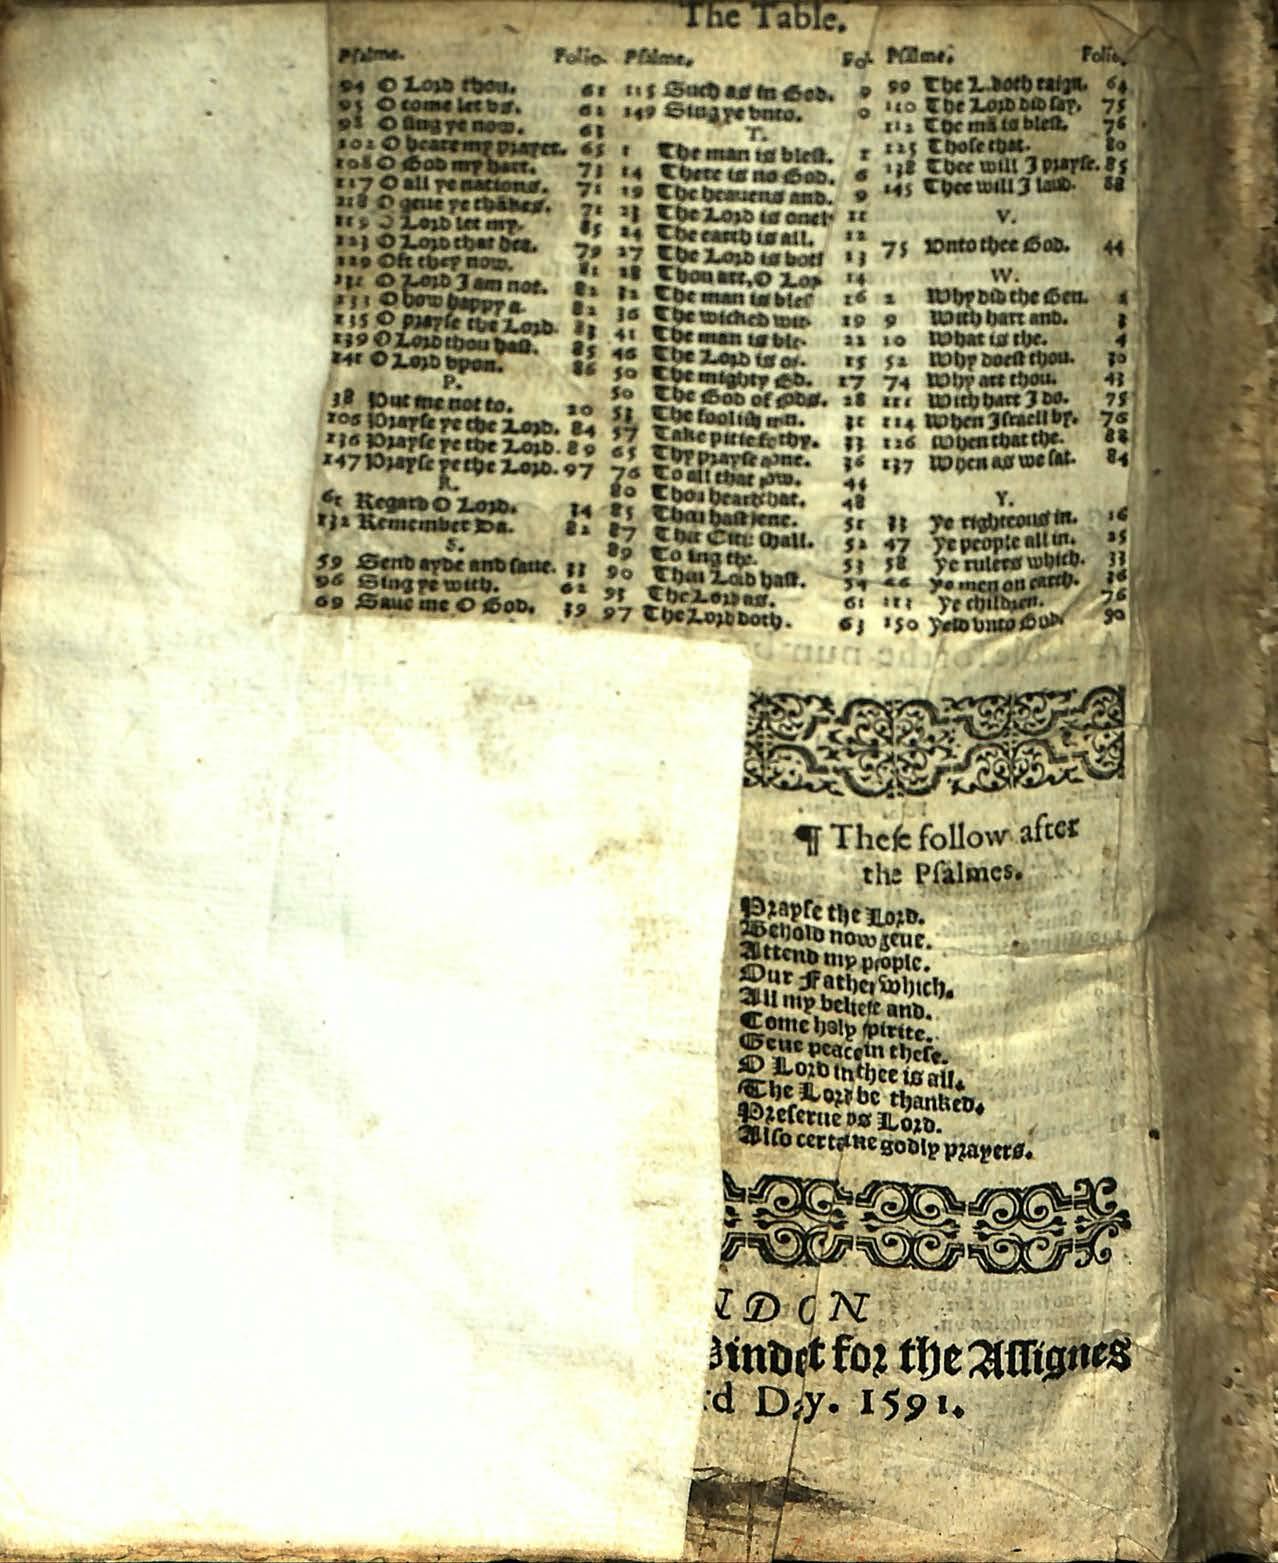 The Table.
Psalme. Folio.
94 O Lord thou. 61
95 O come let vs. 62
98 O sing ye now. 63
102 O heare my prayer. 65
108 O God my hart. 73
117 O all ye nations. 71
118 O geue ye thākes. 71
119 O Lord let my. 85
123 O Lord that hea. 79
129 Oft they now. 81
131 O Lord I am not. 82
133 O how happy a. 82
135 O prayse the Lord. 83
139 O Lord thou hast. 85
141 O Lord vpon. 86
P.
38 Put me not to. 20
106 Prayse ye the Lord. 84
136 Prayse ye the Lord. 89
147 Prayse ye the Lord. 97
R.
61 Regard O Lord. 34
132 Remember Da. 82
S.
59 Send ayde and saue. 33
96 Sing ye with. 62
69 Saue me O God. 39
Psalme, Fol.
115 Such as in God. 9
149 Sing ye vnto. 0
T.
1 The man is blest. 1
14 There is no God. 6
19 The heauens and. 9
23 The Lord is onely 11
24 The earth is all. 12
27 The Lord is both 13
28 Thou art, O Lor 14
32 The man is bles 16
36 The wicked wit 19
41 The man is ble 22
46 The Lord is o 25
50 The mighty Gd. 27
50 The God of gods. 28
53 The foolish mn. 31
57 Take pitie fo thy. 33
65 Thy prayse aone. 36
76 To all that ow. 44
80 Thou heard that. 48
85 Thou hast ene. 51
87 That Citie shall. 52
89 To ing the. 53
90 Thou Lord hast. 54
93 The Lord as. 61
97 The Lord doth. 63
Psalme. Folio.
99 The L. doth raign. 64
110 The Lord did say. 75
112 The mā is blest. 76
125 Those that. 80
138 Thee will I prayse. 85
145 Thee will I laud. 88
V.
75 Vnto thee God. 44
W.
2 Why did the Gen. 2
9 With hart and. 3
10 What is the. 4
52 Why doest thou. 30
74 Why art thou. 43
111 With hart I do. 75
114 When Israell by. 76
126 When that the. 88
137 When as we sat. 84
Y.
33 Ye righteous in. 16
47 Ye people all in. 25
58 Ye rulers which. 33
66 Ye men on earth. 36
113 Ye children. 76
150 Yeld vnto God. 90
¶ These follow after
the Psalmes.
Prayse the Lord.
Behold now geue.
Attend my people.
Our Father which.
All my beliefe and.
Come holy spirite.
Geue peace in these.
O Lord in thee is all.
The Lord be thanked.
Preserue vs Lord.
Also certaine godly prayers.
NDON
Windet for the Assignes
rd Day. 1591.